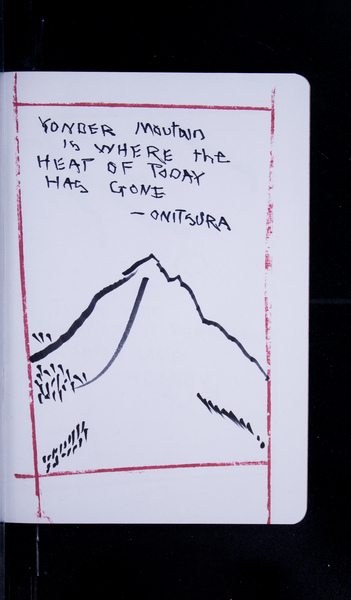 YONDER MOUTAIN
IS WHERE the
HEAT OF TODAY
HAS GONE
— ONITSURA